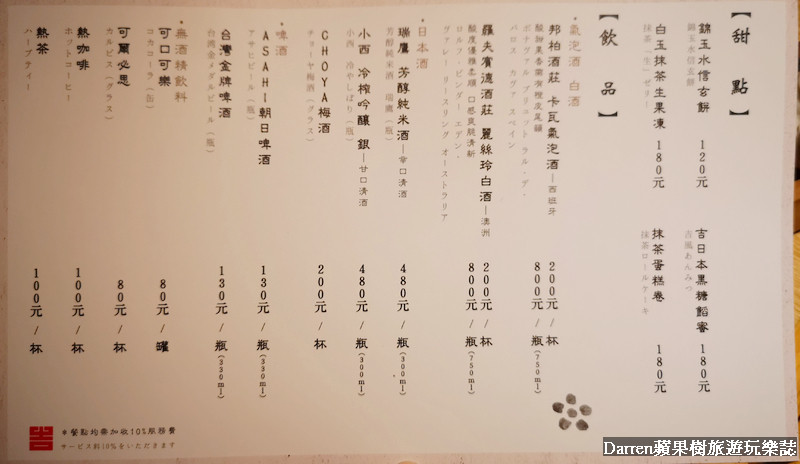 【甜點】
錦玉水信玄餅 120元
錦玉水信玄餅
吉日本黑糖餡蜜 180元
古風あんみつ
白玉抹茶生果凍 180元
抹茶(生)ゼリー
抹茶蛋糕卷 180元
抹茶ロールケーキ
【飲品】
・氣泡酒 白酒
邦柏酒莊 卡瓦氣泡酒—西班牙
200元/杯
800元/瓶(750ml)
ボナヴァル ブリュット ラル・デ・
パロス カヴァ スペイン
羅夫賓德酒莊 麗絲玲白酒—澳洲
200元/杯
800元/瓶(750ml)
酸度優雅柔順 口感爽脆清新
ロルフ・ビンダー エデン・
ヴァレー リースリング オーストラリア
・日本酒
瑞鷹 芳醇純米酒—辛口清酒 480元/瓶(300ml)
芳醇純米酒 瑞鷹(瓶)
小西 冷榨吟釀 銀—甘口清酒 480元/瓶(300ml)
小西 冷やしぼり(瓶)
CHOYA梅酒 200元/杯
チョーヤ梅酒(グラス)
・啤酒
ASAHI朝日啤酒 130元/瓶(330ml)
アサヒビール(瓶)
台灣金牌啤酒 130元/瓶(330ml)
台湾金メダルビール(瓶)
・無酒精飲料
可口可樂 80元/罐
コカコーラ(缶)
可爾必思 80元/杯
カルピス(グラス)
熱咖啡 100元/杯
ホットコーヒー
熱茶 100元/杯
ハーブティー
*餐點均需加收10%服務費
サービス料10%をいただきます
Darren蘋果樹旅遊玩樂誌